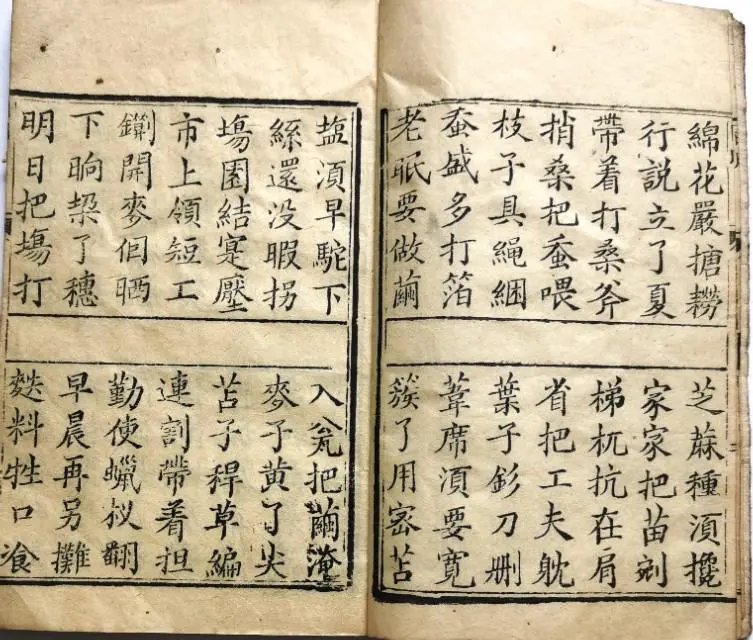 綿花嚴搪耮
芝蔴種須攙
行說立了夏
家家把苗剜
帶着打桑斧
梯杌抗在肩
捎桑把蚕喂
省把工夫躭
枝子具繩綑
葉子釤刀刪
蚕盛多打箔
葦席須要寬
老眠要做繭
簇了用宻苫
塩須早駝下
入瓮把繭淹
絲還没暇拐
麥子黄了尖
塲園結寔壓
苫子稈草編
市上領短工
連割帶着担
鍘開麥佪晒
勤使蠟杈翻
下晌了穗
早晨再另攤
明日把塲打
麩料牲口飡